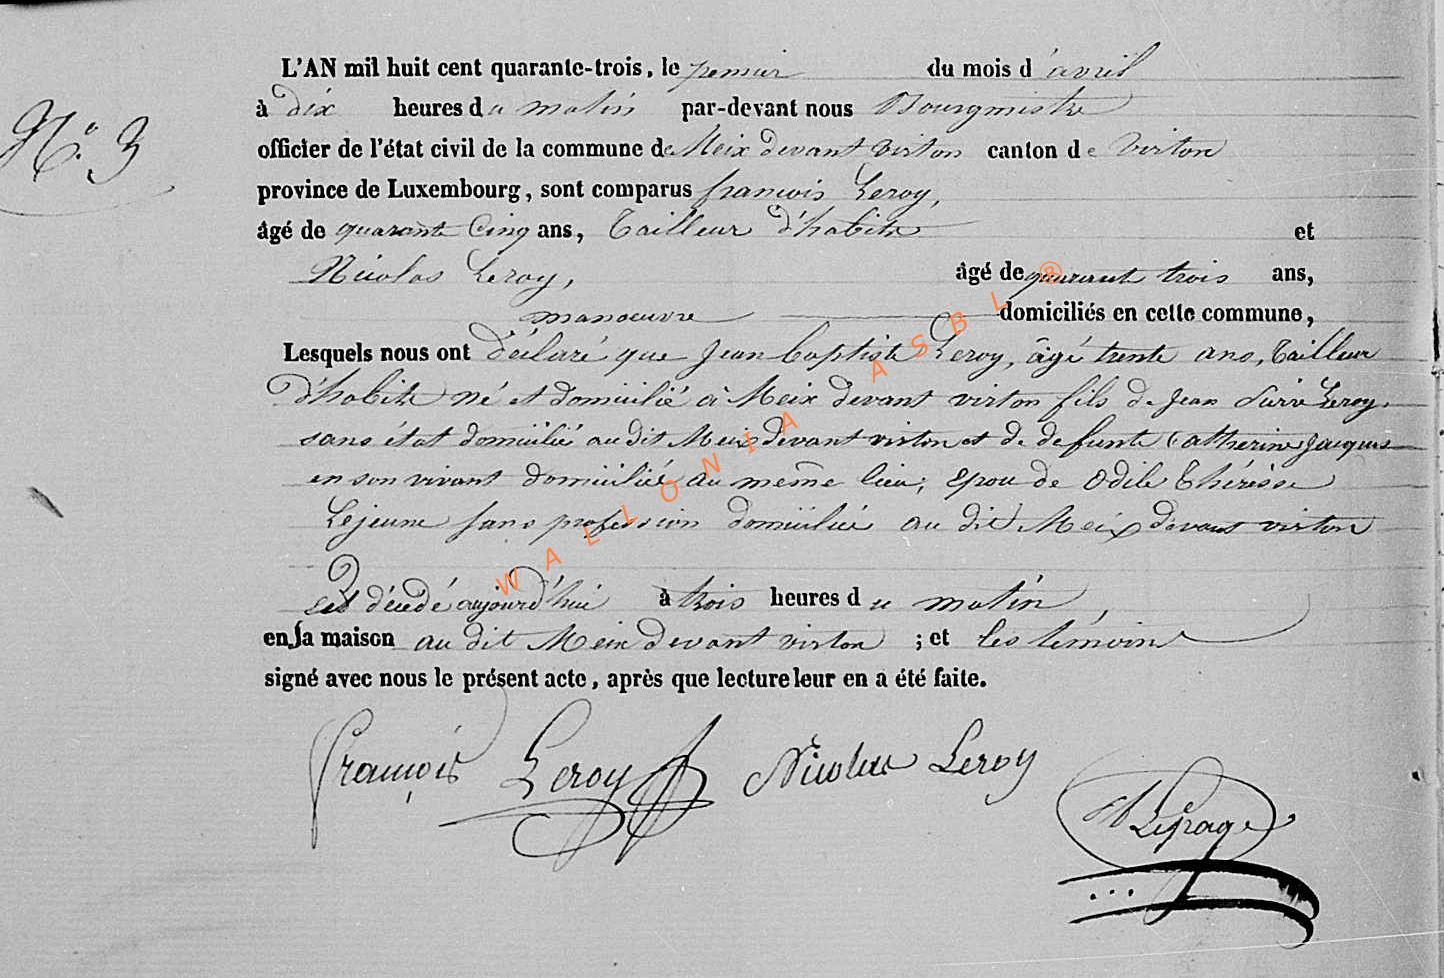 N.° 3
L'AN mil huit cent quarante-trois, le premier du mois d'avril
à dix heures du matin par-devant nous Bourgmistre
officier de l'état civil de la commune de Meix devant virton canton de virton
province de Luxembourg, sont comparus françois Leroy,
âgé de quarante Cinq ans, Tailleur d'habits et
Nicolas Leroy, âgé de quarante trois ans,
manoeuvre domiciliés en cette commune,
Lesquels nous ont déclaré que Jean baptiste Leroy, âgé trente ans, Tailleur
d'habits né et domicilié à Meix devant virton fils de Jean Leroy
sans état domicilié au dit Meix devant virton et de defunte Catherine Jacques
en son vivant domicilié au même lieu, Epoux de Odile Thérèse
Lejeune sans profession domiciliée au dit Meix devant virton
Est décédé aujourd'hui à trois heures du matin,
en sa maison au dit Meix devant virton ; et les témoins
signé avec nous le présent acte, après que lecture leur en a été faite.
françois Leroy Nicolas Leroy
Lepage
WALLONIA ASBL ®